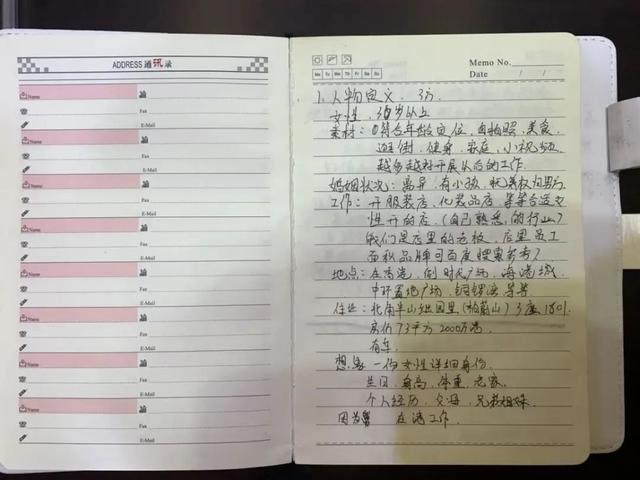 ADDRESS 通讯录
Name
Fax
E-Mail
Name
Fax
E-Mail
Name
Fax
E-Mail
Name
Fax
E-Mail
Name
Fax
E-Mail
Name
Fax
E-Mail
Name
Fax
E-Mail
Name
Fax
E-Mail
Mo Tu We Th Fr Sa Su
Memo No.
Date / /
1. 人物定义. 3方.
女性, 30岁以上
素材: ①符合年龄定位, 自拍照, 美食,
逛街, 健身, 家庭, 小视频
越多越好开展以后的工作.
婚姻状况: 离异, 有小孩, 抚养权归男方
工作: 开服装店, 化妆品店, 等等合适女
性开的店. (自己熟悉的行业)
我们是店里的老板, 店里员工
面积品牌可百度搜索参考?
地点: 在香港, 例 时代广场, 海港城,
中环置地广场, 铜锣湾 等等
住址: 北角半山 (柏蔚山) 3座1801.
房价73平方 2000万港
有车.
想象 一份女性详细身份.
生日, 身高, 体重, 老家.
个人经历, 父母, 兄弟姐妹.
因为 在港工作.